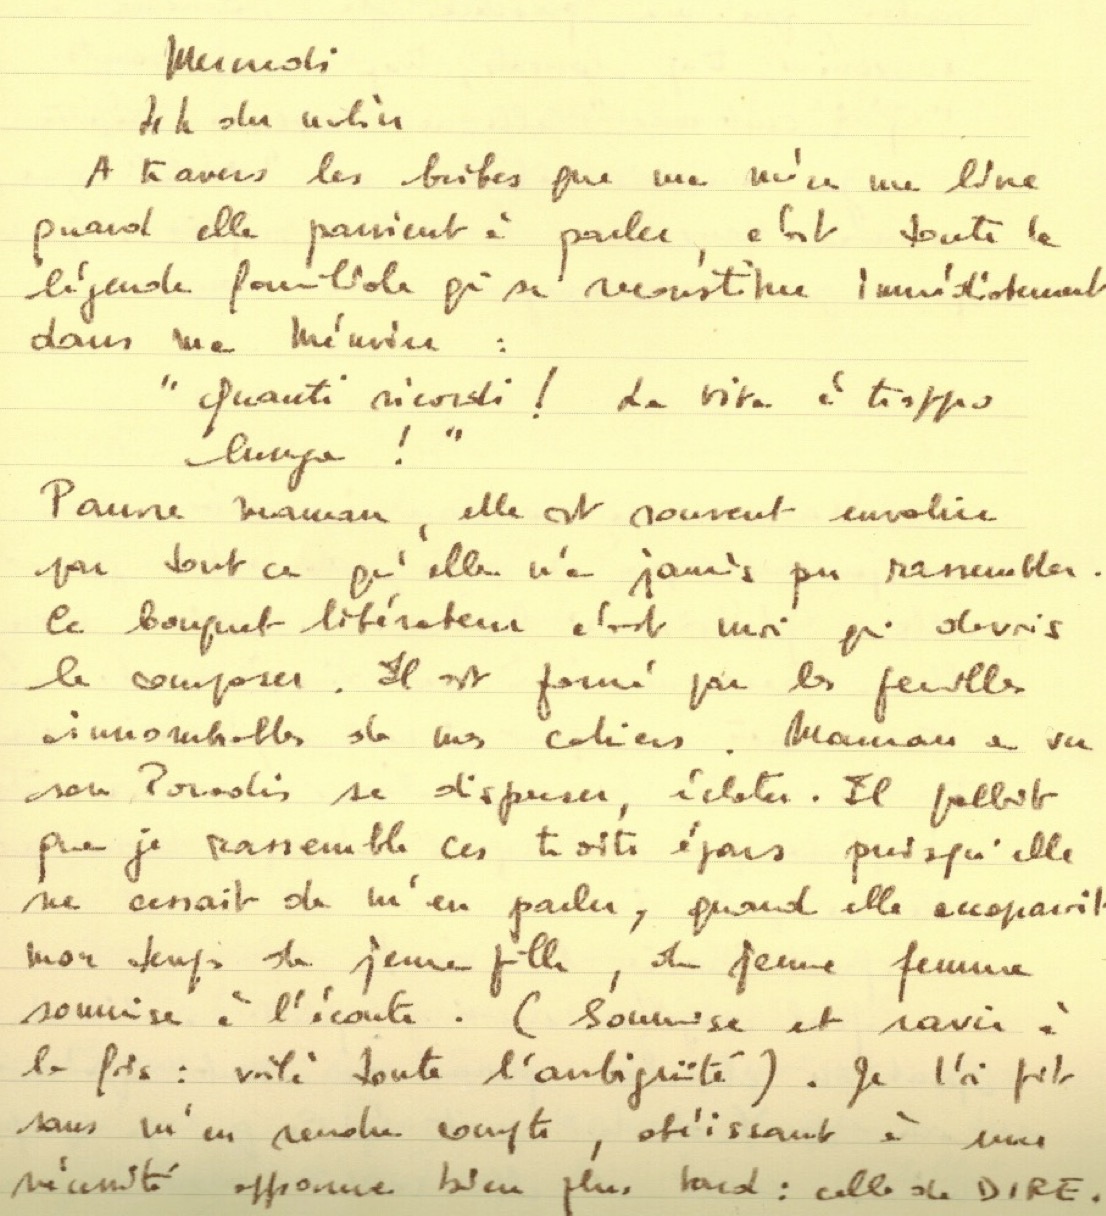 Mercredi
4h du matin
A travers les bribes que ma mère me livre
quand elle parvient à parler, c'est toute la
légende familiale qui se reconstitue immédiatement
dans ma mémoire :
" Quanti ricordi ! La vita è troppo
lunga ! "
Pauvre maman, elle est souvent envahie
par tout ce qu'elle n'a jamais pu rassembler.
Ce bouquet libérateur c'est moi qui devais
le composer. Il est formé par les feuilles
innombrables de mes cahiers. Maman a vu
son Paradis se disperser, éclater. Il fallait
que je rassemble ces traits épars puisqu'elle
ne cessait de m'en parler, quand elle accaparait
mon temps de jeune fille, de jeune femme
soumise à l'écoute. ( Soumise et ravie à
la fois : voilà toute l'ambiguïté ). Je l'ai fait
sans m'en rendre compte, obéissant à une
nécessité apparue bien plus tard : celle de DIRE.